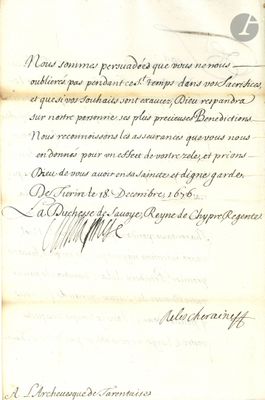 Nous sommes persuadées que vous ne nous
oublierés pas pendant ce St. temps dans vos Sacrifices,
et que si vos souhaits sont exaucez, Dieu respandra
sur nostre personne ses plus precieuses Benedictions
Nous reconnoissons les asseurances que vous nous
en donné pour un effect de vostre zele, et prions
Dieu de vous avoir en sa saincte et digne garde.
De Turin le 18 Decembre 1676
La Duchesse de Savoye, Reyne de Chypre, Regente
A L'Archevesque de Tarentaise